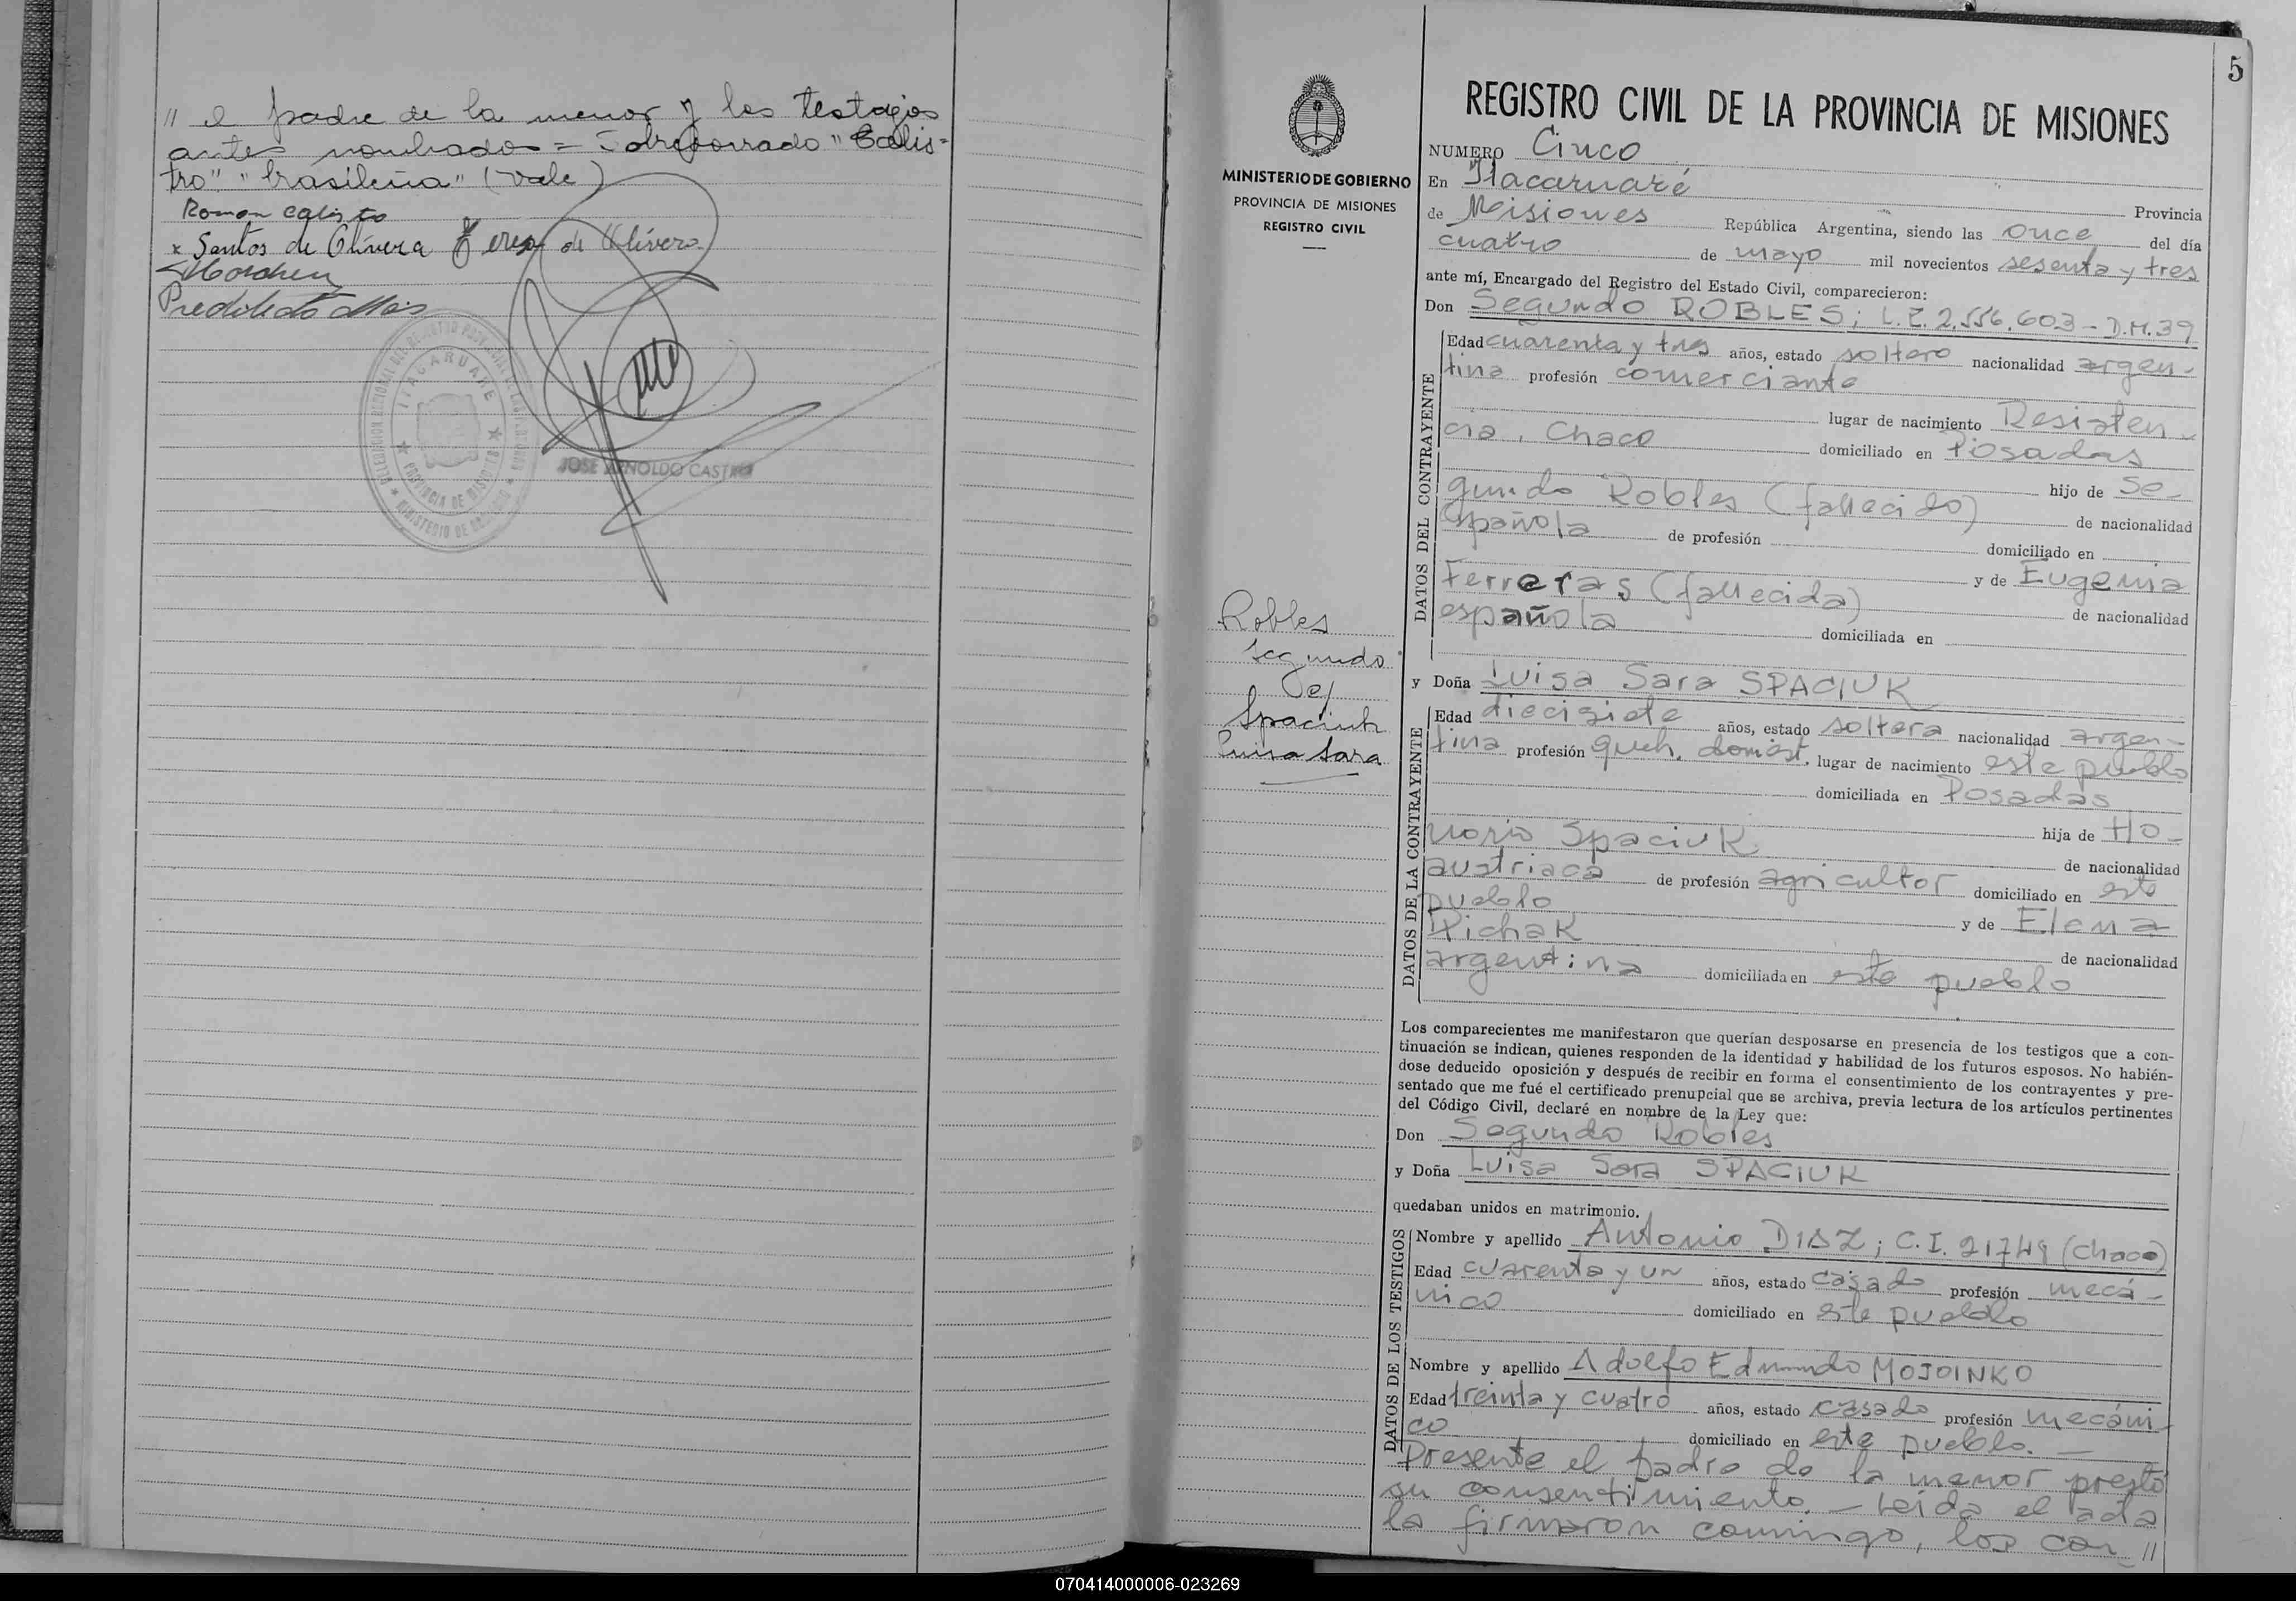 // el padre de la menor y los testigos
antes nombrados = Sobreborrado "Calis-
tro" "brasileña" (vale)
Roman Calisto
x Santos de Olivera Teresa de Olivera
Predilecto
ITACARUARE
PROVINCIA DE MISIONES
JOSE ARNOLDO CASTRO
5
MINISTERIO DE GOBIERNO
PROVINCIA DE MISIONES
REGISTRO CIVIL
Robles
Segundo
c/
Spaciuk
Luisa Sara
REGISTRO CIVIL DE LA PROVINCIA DE MISIONES
NUMERO Cinco
En Itacaruaré Provincia
de Misiones República Argentina, siendo las once del día
cuatro de mayo mil novecientos sesenta y tres
ante mí, Encargado del Registro del Estado Civil, comparecieron:
Don Segundo ROBLES; L.E. 2.556.603 - D.M. 39
DATOS DEL CONTRAYENTE
Edad cuarenta y tres años, estado soltero nacionalidad argen-
tina profesión comerciante
lugar de nacimiento Resisten-
cia, Chaco domiciliado en Posadas
hijo de Se-
gundo Robles (fallecido) de nacionalidad
española de profesión domiciliado en
y de Eugenia
Ferreras (fallecida) de nacionalidad
española domiciliada en
y Doña Luisa Sara SPACIUK
DATOS DE LA CONTRAYENTE
Edad diecisiete años, estado soltera nacionalidad argen-
tina profesión queh. domést. lugar de nacimiento este pueblo
domiciliada en Posadas
hija de Ho-
norio Spaciuk de nacionalidad
austriaca de profesión agricultor domiciliado en este
pueblo y de Elena
Pichak de nacionalidad
argentina domiciliada en este pueblo
Los comparecientes me manifestaron que querían desposarse en presencia de los testigos que a con-
tinuación se indican, quienes responden de la identidad y habilidad de los futuros esposos. No habién-
dose deducido oposición y después de recibir en forma el consentimiento de los contrayentes y pre-
sentado que me fué el certificado prenupcial que se archiva, previa lectura de los artículos pertinentes
del Código Civil, declaré en nombre de la Ley que:
Don Segundo Robles
y Doña Luisa Sara SPACIUK
quedaban unidos en matrimonio.
DATOS DE LOS TESTIGOS
Nombre y apellido Antonio DIAZ; C.I. 21749 (Chaco)
Edad cuarenta y un años, estado casado profesión mecá-
nico domiciliado en este pueblo
Nombre y apellido Adolfo Edmundo MOJOINKO
Edad treinta y cuatro años, estado casado profesión mecáni-
co domiciliado en este pueblo. —
Presente el padre de la menor prestó
su consentimiento. — Leída el acta
la firmaron conmigo, los con //
070414000006-023269